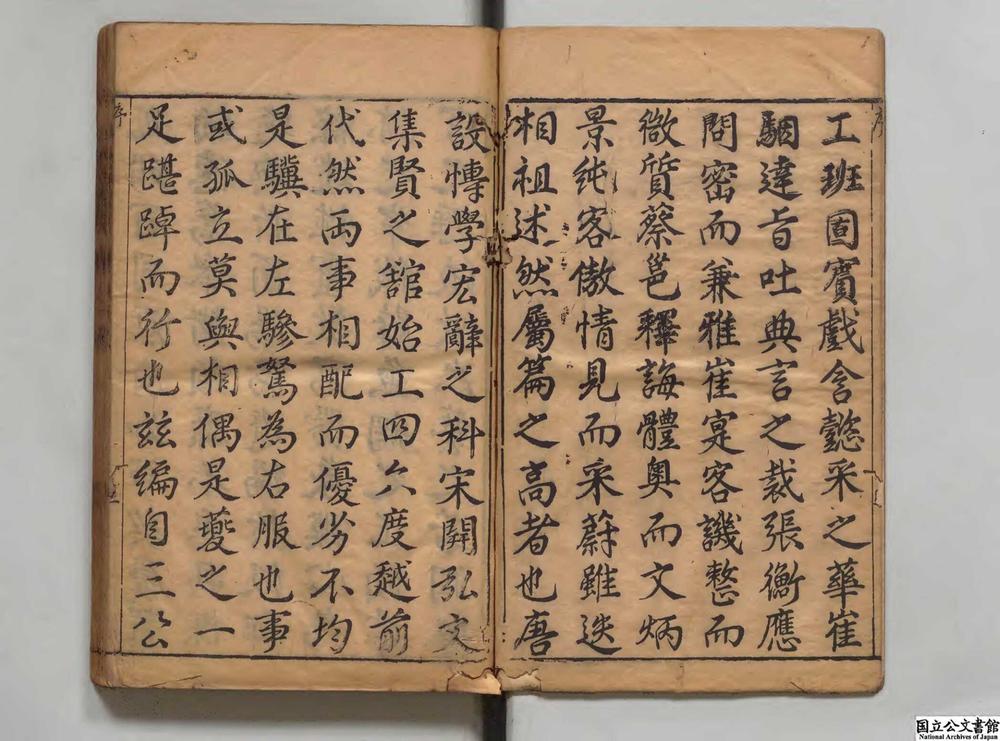 工班固賓戲含懿采之華崔
駰達旨吐典言之裁張衡應
問密而兼雅崔寔客譏整而
微質蔡邕釋誨體奧而文炳
景純客傲情見而采蔚雖迭
相祖述然屬篇之高者也唐
設愽學宏辭之科宋開弘文
集賢之舘始工四六度越前
代然兩事相配而優劣不均
是驥在左驂駑為右服也事
或孤立莫與相偶是夔之一
足踸踔而行也茲編自三公
序
序
国立公文書館
National Archives of Japan